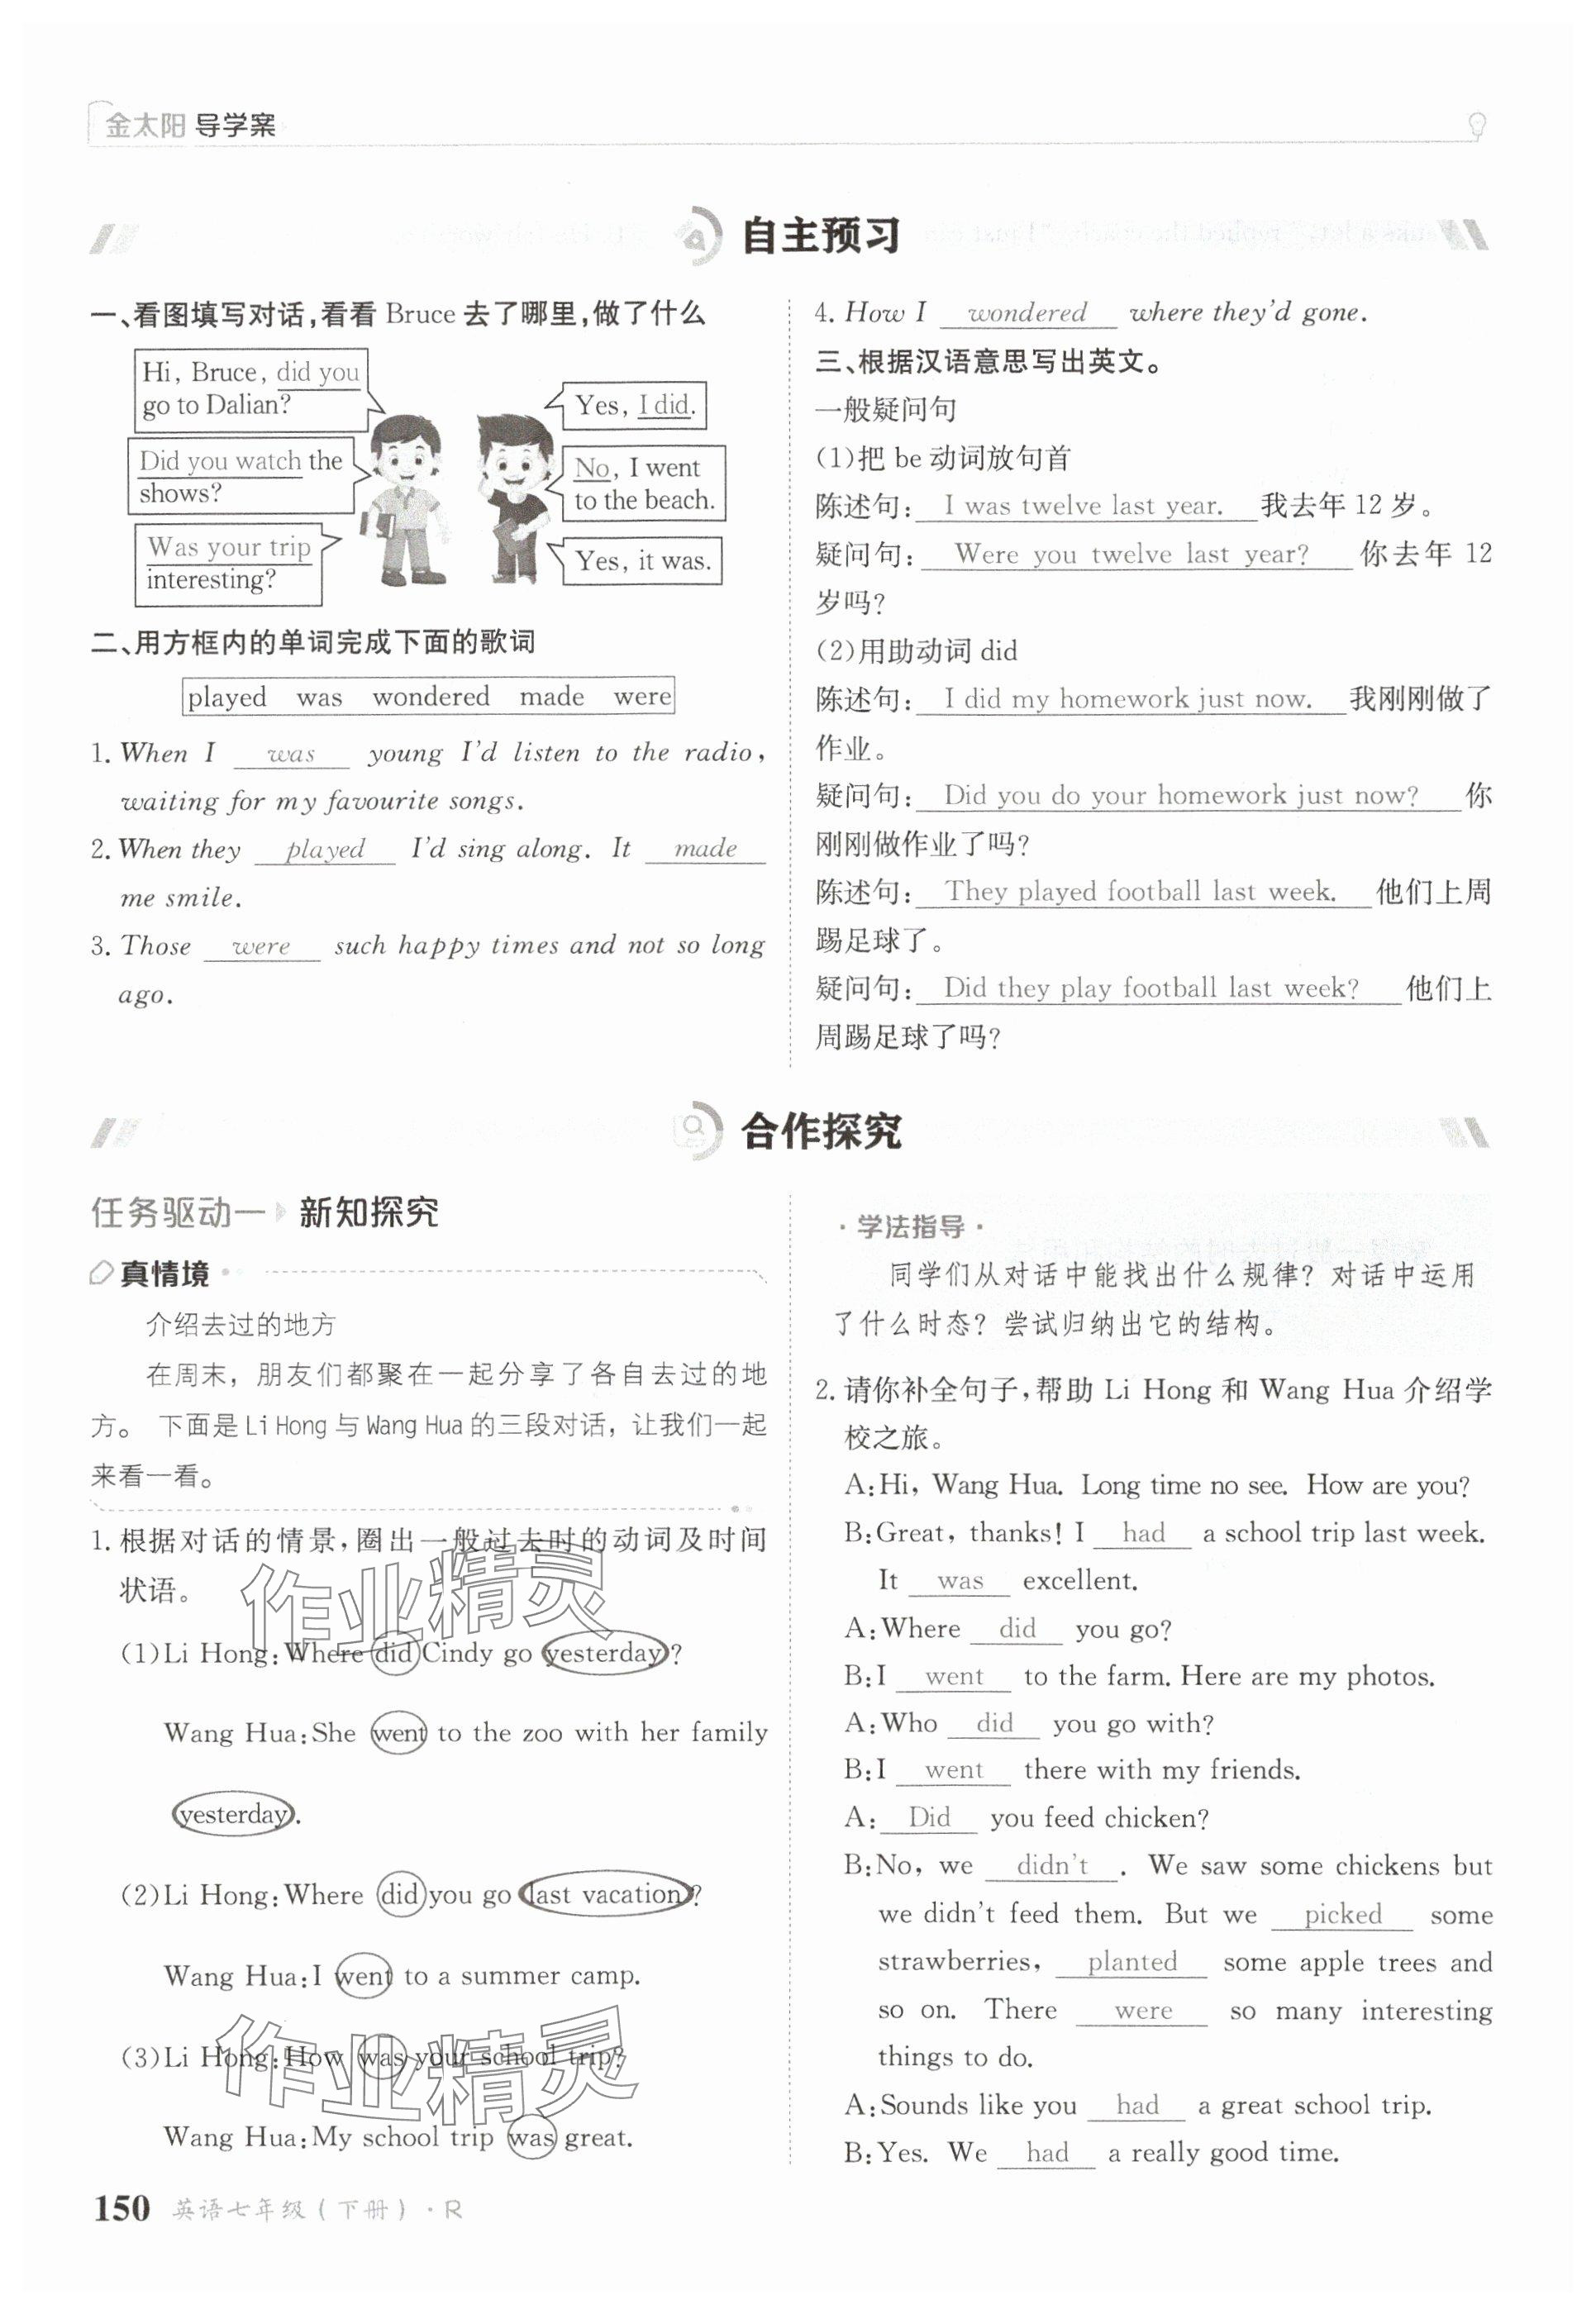 金太阳 导学案
自主预习
一、看图填写对话,看看 Bruce 去了哪里,做了什么
Hi, Bruce, did you
go to Dalian?
Yes, I did.
Did you watch the
shows?
No, I went
to the beach.
Was your trip
interesting?
Yes, it was.
二、用方框内的单词完成下面的歌词
played was wondered made were
1. When I was young I'd listen to the radio,
waiting for my favourite songs.
2. When they played I'd sing along. It made
me smile.
3. Those were such happy times and not so long
ago.
4. How I wondered where they'd gone.
三、根据汉语意思写出英文。
一般疑问句
(1)把 be 动词放句首
陈述句: I was twelve last year. 我去年 12 岁。
疑问句: Were you twelve last year? 你去年 12
岁吗?
(2)用助动词 did
陈述句: I did my homework just now. 我刚刚做了
作业。
疑问句: Did you do your homework just now? 你
刚刚做作业了吗?
陈述句: They played football last week. 他们上周
踢足球了。
疑问句: Did they play football last week? 他们上
周踢足球了吗?
合作探究
任务驱动一 新知探究
真情境
介绍去过的地方
在周末，朋友们都聚在一起分享了各自去过的地
方。 下面是 Li Hong 与 Wang Hua 的三段对话，让我们一起
来看一看。
1. 根据对话的情景,圈出一般过去时的动词及时间
状语。
(1)Li Hong:Where did Cindy go yesterday?
Wang Hua:She went to the zoo with her family
yesterday.
(2)Li Hong:Where did you go last vacation?
Wang Hua:I went to a summer camp.
(3)Li Hong:How was your school trip?
Wang Hua:My school trip was great.
·学法指导·
同学们从对话中能找出什么规律? 对话中运用
了什么时态? 尝试归纳出它的结构。
2. 请你补全句子,帮助 Li Hong 和 Wang Hua 介绍学
校之旅。
A:Hi, Wang Hua. Long time no see. How are you?
B:Great, thanks! I had a school trip last week.
It was excellent.
A:Where did you go?
B:I went to the farm. Here are my photos.
A:Who did you go with?
B:I went there with my friends.
A: Did you feed chicken?
B:No, we didn't . We saw some chickens but
we didn't feed them. But we picked some
strawberries, planted some apple trees and
so on. There were so many interesting
things to do.
A:Sounds like you had a great school trip.
B:Yes. We had a really good time.
作业精灵
作业精灵
150 英语七年级(下册)·R